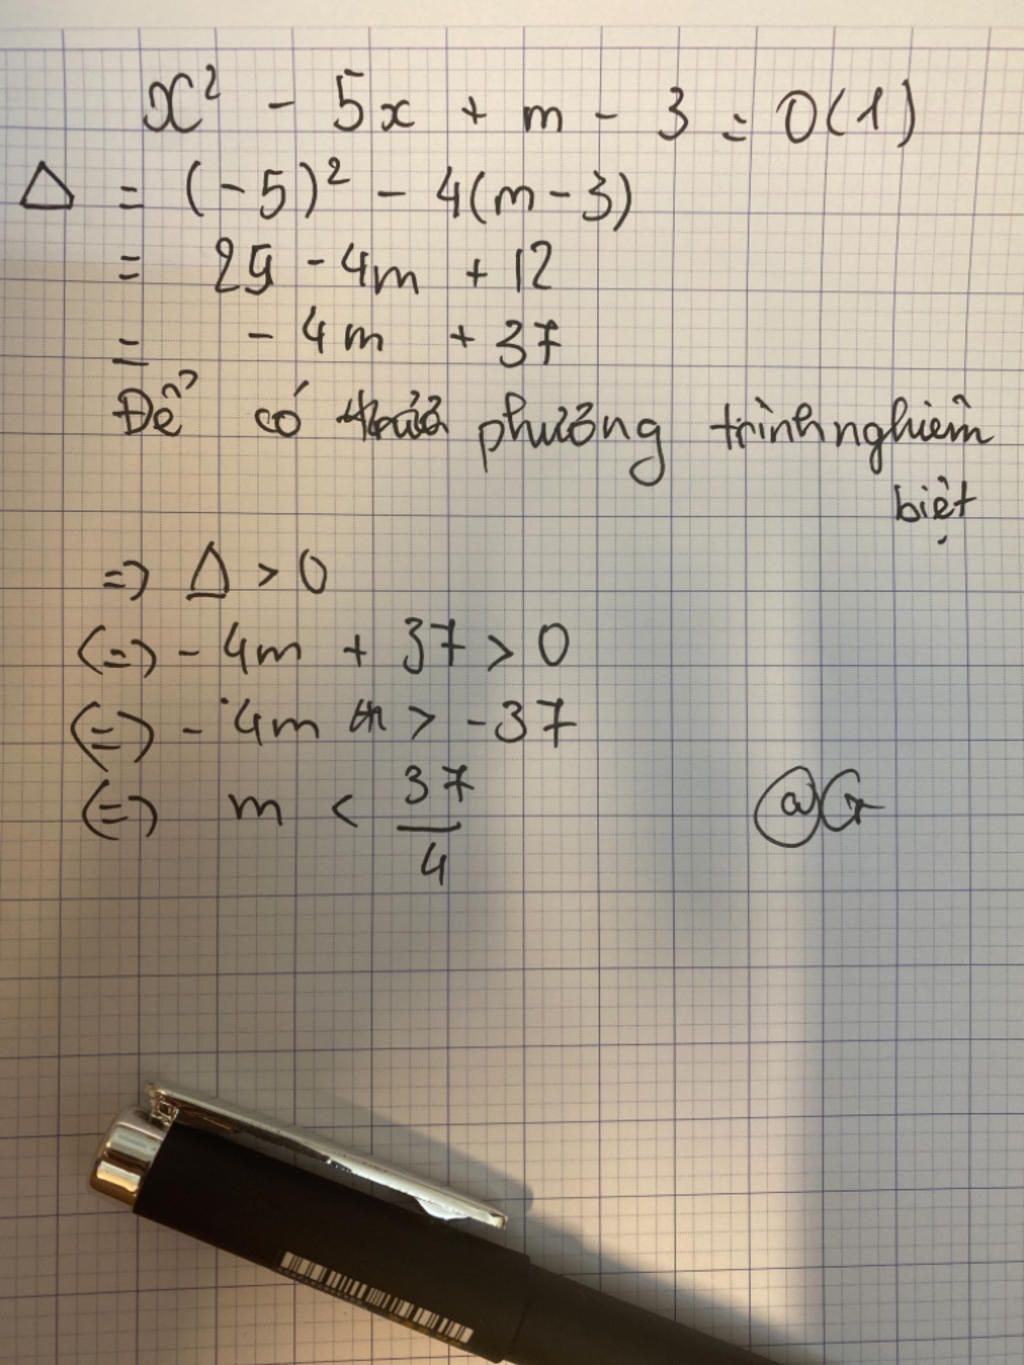 x² - 5x + m - 3 = 0 (1)
Δ = (-5)² - 4(m - 3)
= 25 - 4m + 12
= - 4m + 37
Để có phương trình nghiệm
biệt
=> Δ > 0
(=) - 4m + 37 > 0
(=) - 4m > -37
(=) m < 37/4
@G